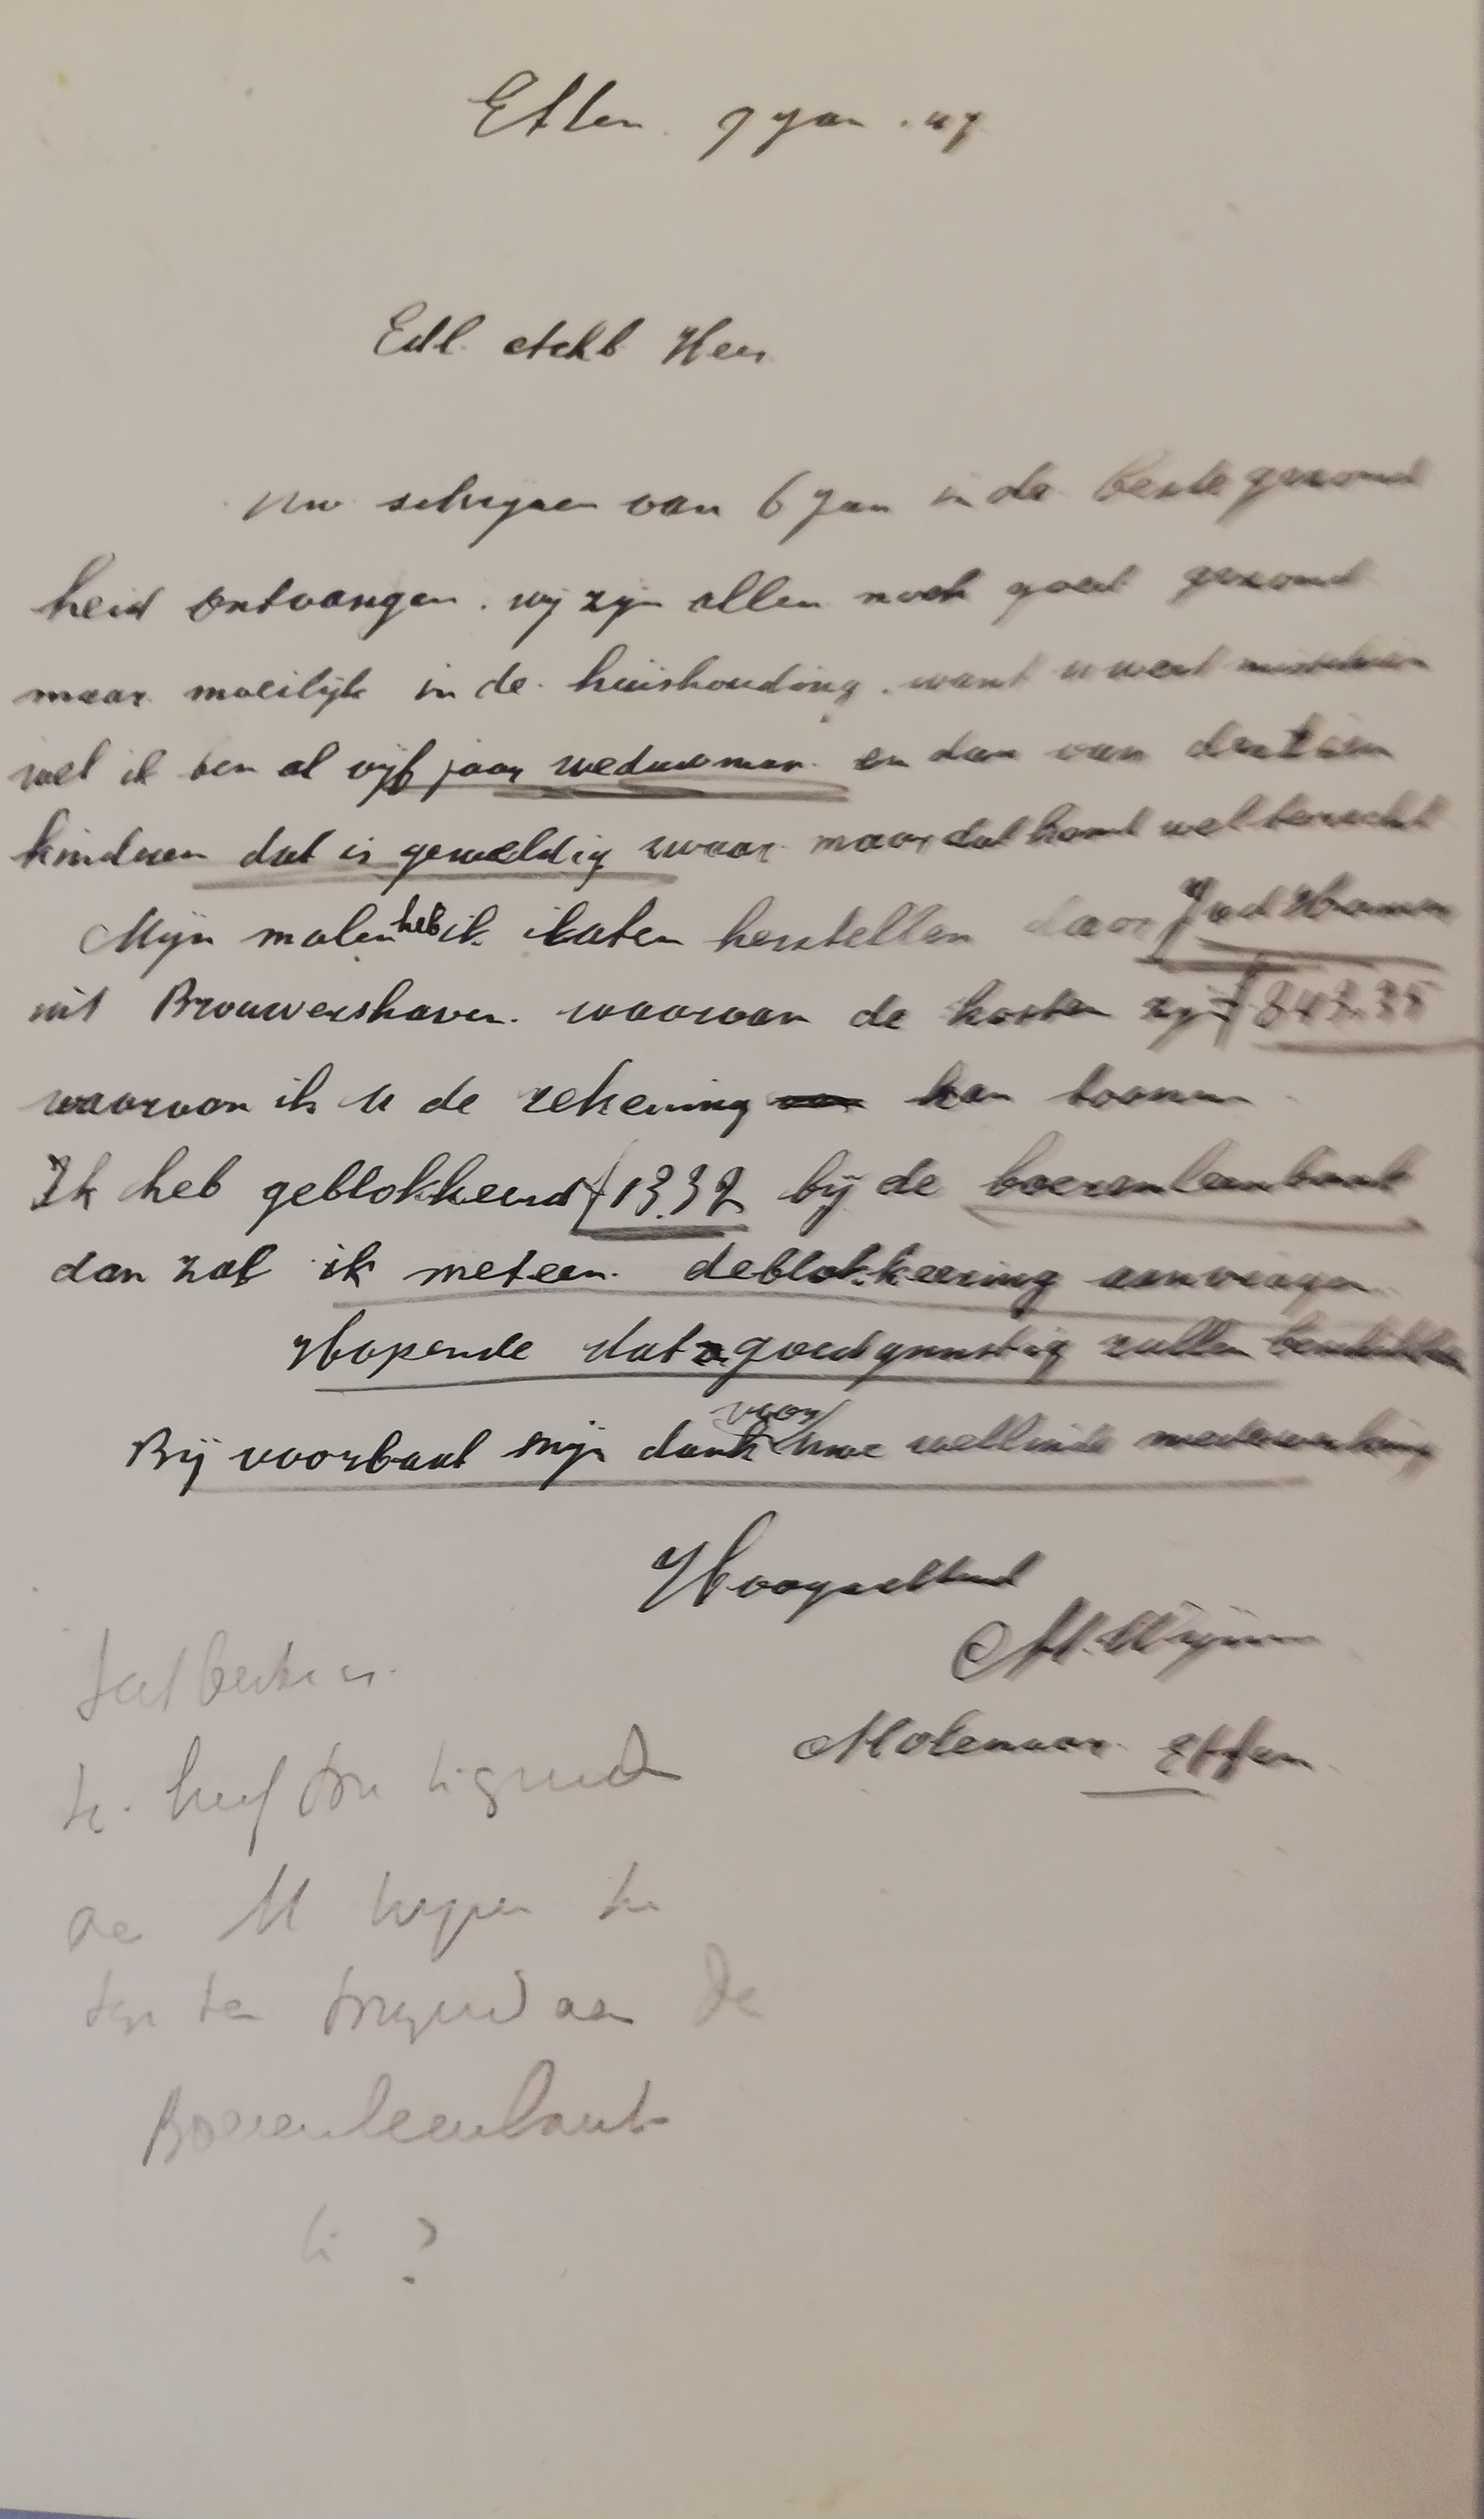 Etten. 7 Jan. 47
Edl. Achtb Heer
Uw schrijven van 6 Jan in de beste gezond
heid ontvangen. wij zijn allen noch goed gezond
maar moeilijk in de huishouding. want u weet misschien
wel ik ben al vijf jaar weduwman en dan van dertien
kinderen dat is geweldig zwaar maar dat komt wel terecht
Mijn molen heb ik laten herstellen door
uit Brouwershaven. waarvan de kosten zijn f 843.35
waarvan ik u de rekening kan toonen
Ik heb geblokkeerd f 1332 bij de boerenleenbank
dan zal ik meteen deblokkeering aanvragen
Hopende dat goedgunstig zullen beschikken
Bij voorbaat mijn dank voor uwe welwillende medewerking
Hoogachtend
M.
Molenaar Etten.
heef
de M
aan de
Boerenleenbank
?